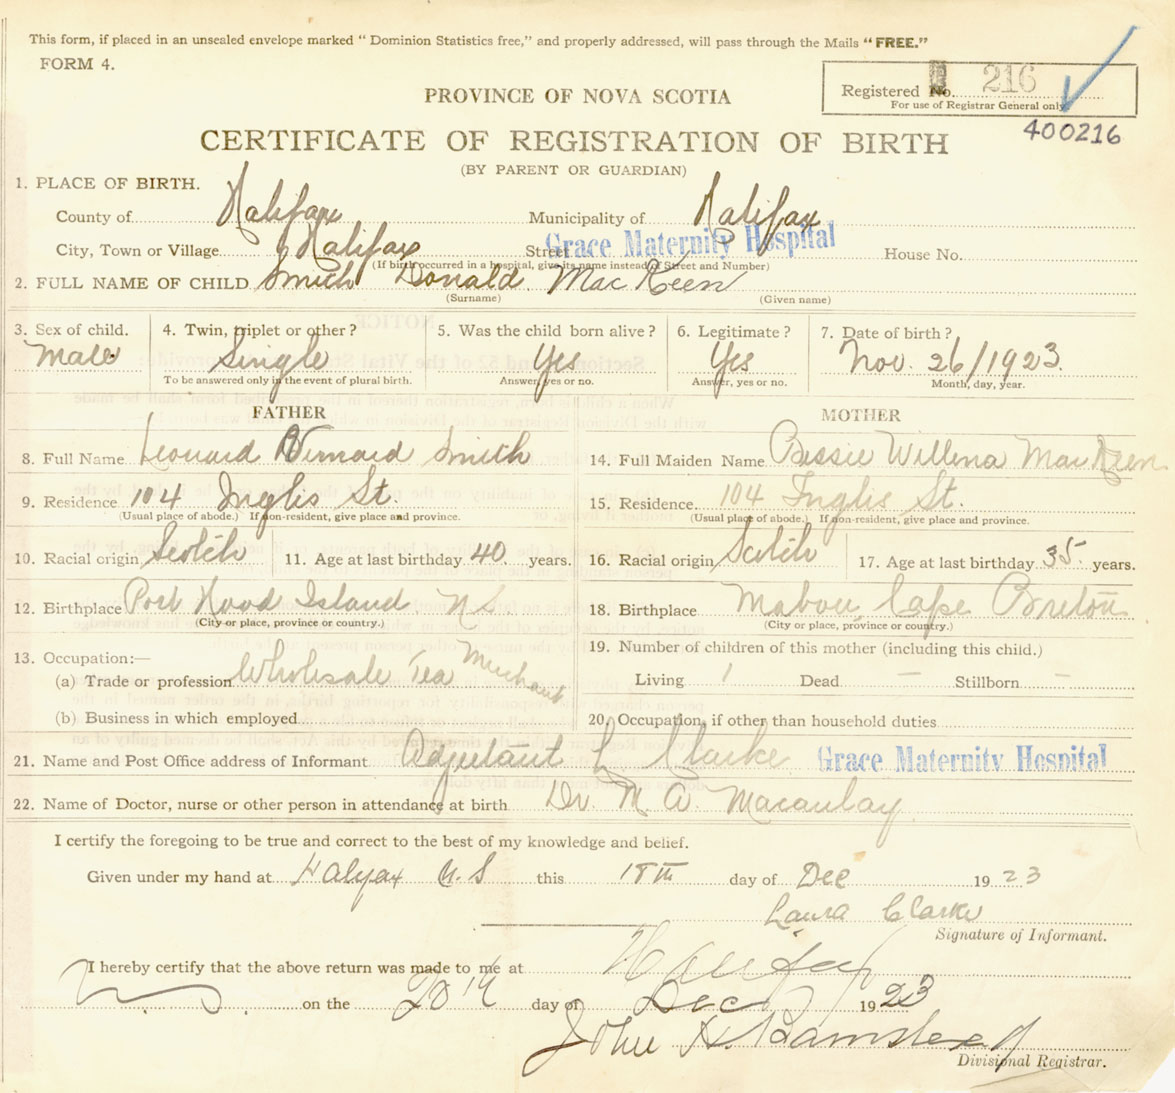 This form, if placed in an unsealed envelope marked " Dominion Statistics free," and properly addressed, will pass through the Mails " FREE."
FORM 4.
Registered No. 216
For use of Registrar General only
400216
PROVINCE OF NOVA SCOTIA
CERTIFICATE OF REGISTRATION OF BIRTH
(BY PARENT OR GUARDIAN)
1. PLACE OF BIRTH.
County of Halifax Municipality of Halifax
City, Town or Village Halifax Street Grace Maternity Hospital House No.
(If birth occurred in a hospital, give its name instead of Street and Number)
2. FULL NAME OF CHILD Smith Donald MacKeen
(Surname) (Given name)
3. Sex of child. 4. Twin, triplet or other? 5. Was the child born alive? 6. Legitimate? 7. Date of birth?
Male Single Yes Yes Nov. 26/1923.
To be answered only in the event of plural birth. Answer, yes or no. Answer, yes or no. Month, day, year.
FATHER MOTHER
8. Full Name Leonard Bernard Smith 14. Full Maiden Name Bessie Willena MacKeen
9. Residence 104 Inglis St. 15. Residence 104 Inglis St.
(Usual place of abode.) If non-resident, give place and province. (Usual place of abode.) If non-resident, give place and province.
10. Racial origin Scotch 11. Age at last birthday 40 years. 16. Racial origin Scotch 17. Age at last birthday 35 years.
12. Birthplace Port Hood Island NS 18. Birthplace Mabou, Cape Breton
(City or place, province or country.) (City or place, province or country.)
13. Occupation:— 19. Number of children of this mother (including this child.)
(a) Trade or profession Wholesale Tea Merchant Living 1 Dead – Stillborn –
(b) Business in which employed 20. Occupation, if other than household duties
21. Name and Post Office address of Informant Adjutant L Clarke Grace Maternity Hospital
22. Name of Doctor, nurse or other person in attendance at birth Dr. M. A. Macaulay
I certify the foregoing to be true and correct to the best of my knowledge and belief.
Given under my hand at Halifax N.S this 18th day of Dec 1923
Laura Clarke
Signature of Informant.
I hereby certify that the above return was made to me at Halifax
on the 20th day of Dec 1923
John H. Barnstead
Divisional Registrar.